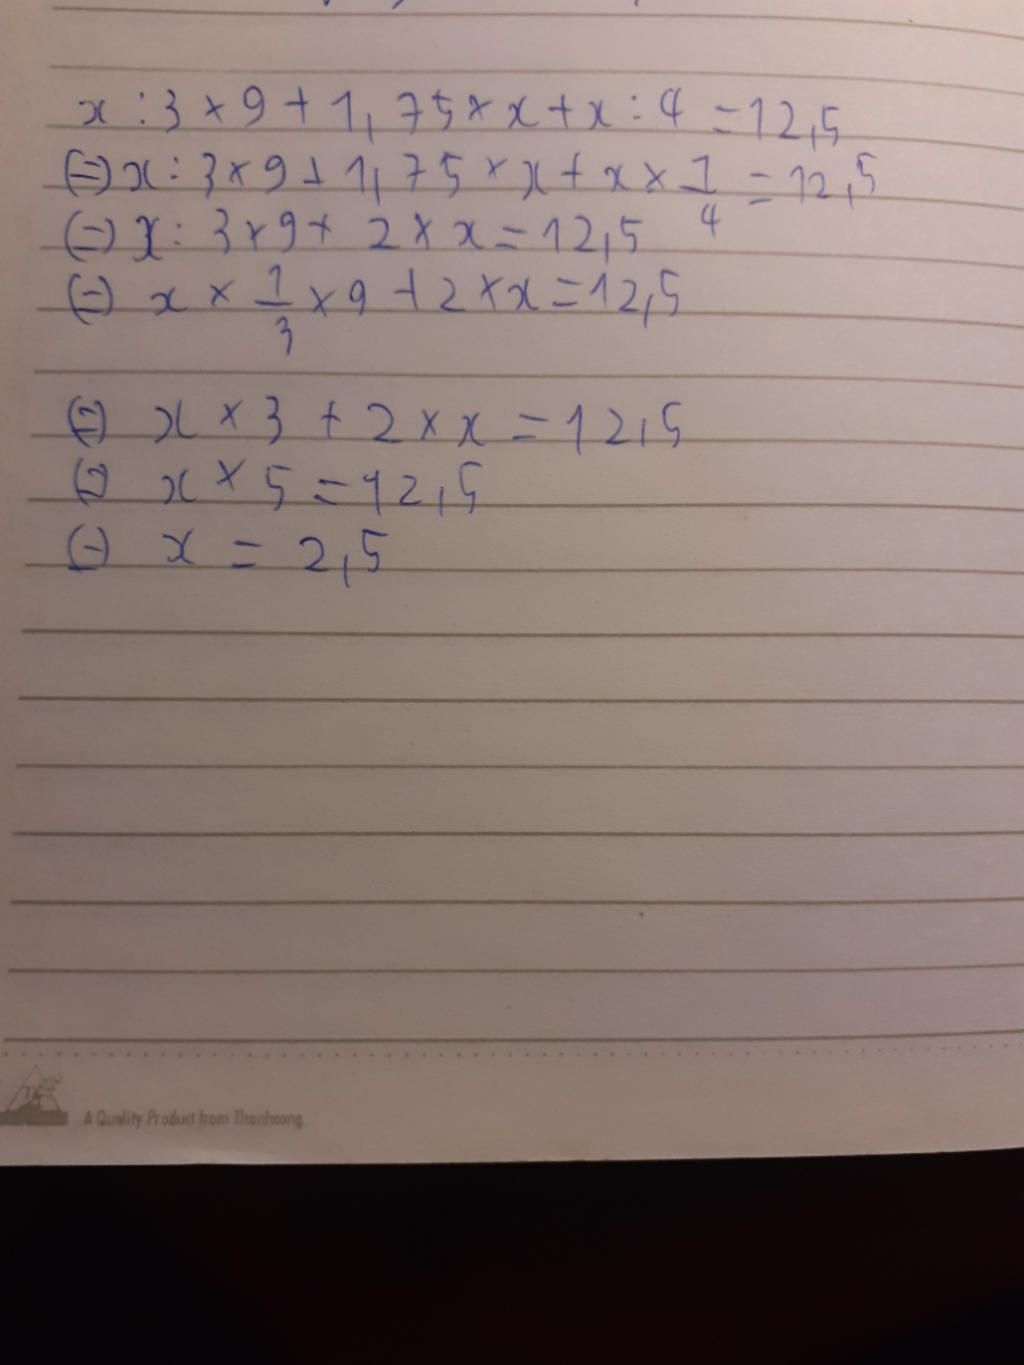 x : 3 × 9 + 1,75 × x + x : 4 = 12,5
(=) x : 3 × 9 + 1,75 × x + x × 1/4 = 12,5
(=) x : 3 × 9 + 2 × x = 12,5
(=) x × 1/3 × 9 + 2 × x = 12,5
(=) x × 3 + 2 × x = 12,5
(=) x × 5 = 12,5
(=) x = 2,5
A Quality Product from Thanhcong.